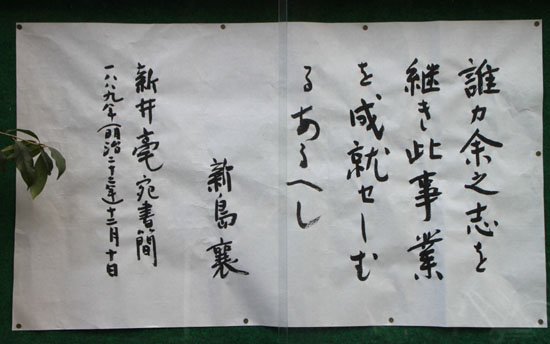 誰カ余之志を
継き此事業
を、成就せしむ
るあるへし
新島襄
新井毫宛書簡
一八八九年(明治二十二年)十二月十日